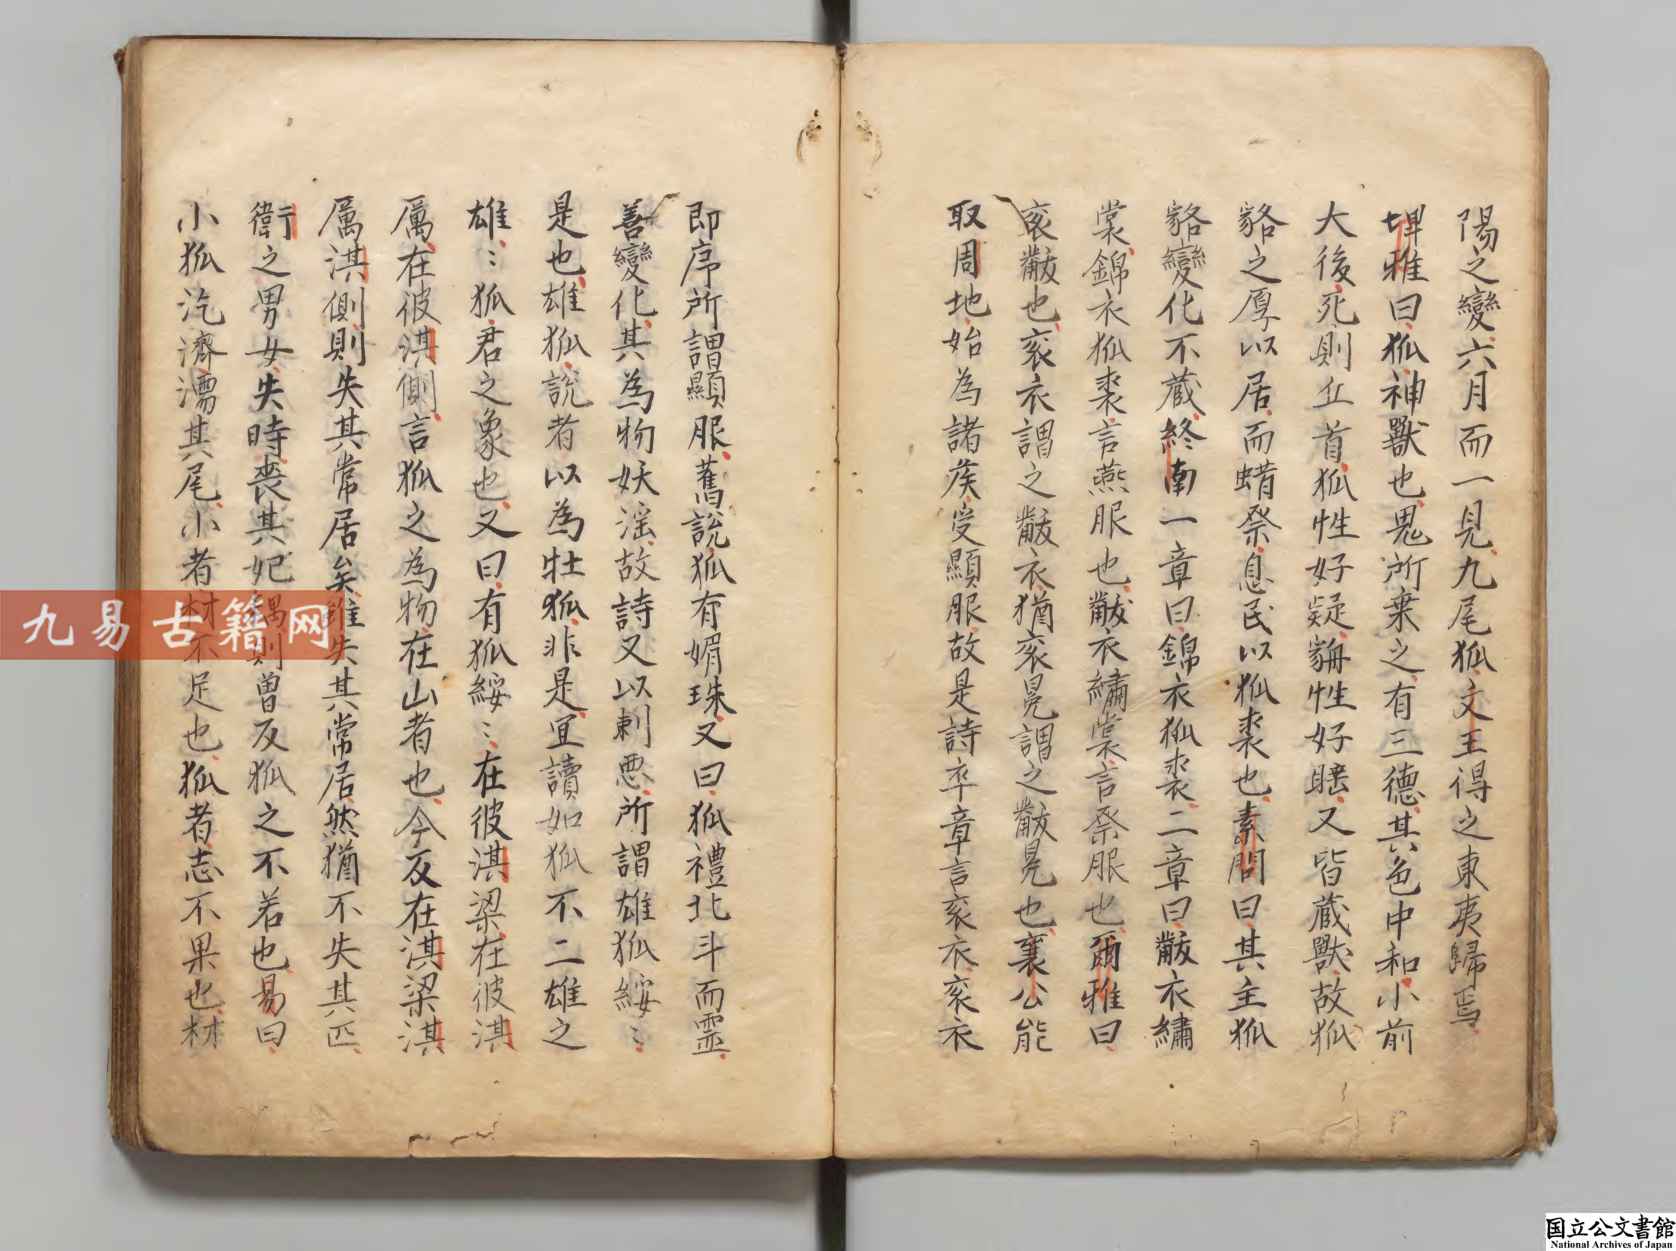 陽之變六月而一見九尾狐文王得之東夷歸焉
埤雅曰狐神獸也鬼所乗之有三德其色中和小前
大後死則丘首狐性好疑貈性好睡又皆蔵獸故狐
貉之厚以居而蜡祭息民以狐裘也素問曰其主狐
貉變化不蔵終南一章曰錦衣狐裘二章曰黻衣繡
裳錦衣狐裘言燕服也黻衣繡裳言祭服也爾雅曰
衮黻也衮衣謂之黻衣猶衮冕謂之黻冕也襄公能
取周地始為諸矦受顯服故是詩卒章言衮衣衮衣
即序所謂顯服舊說狐有媚珠又曰狐禮北斗而靈
善變化其為物妖淫故詩又以刺悪所謂雄狐綏〻
是也雄狐說者以為牡狐非是宜讀如狐不二雄之
雄〻狐君之象也又曰有狐綏〻在彼淇梁在彼淇
厲在彼淇側言狐之為物在山者也今反在淇梁淇
厲淇側則失其常居矣雖失其常居然猶不失其匹
衛之男女失時喪其妃耦則曽反狐之不若也易曰
小狐汔濟濡其尾小者材不足也狐者志不果也材
九易古籍网
国立公文書館
National Archives of Japan